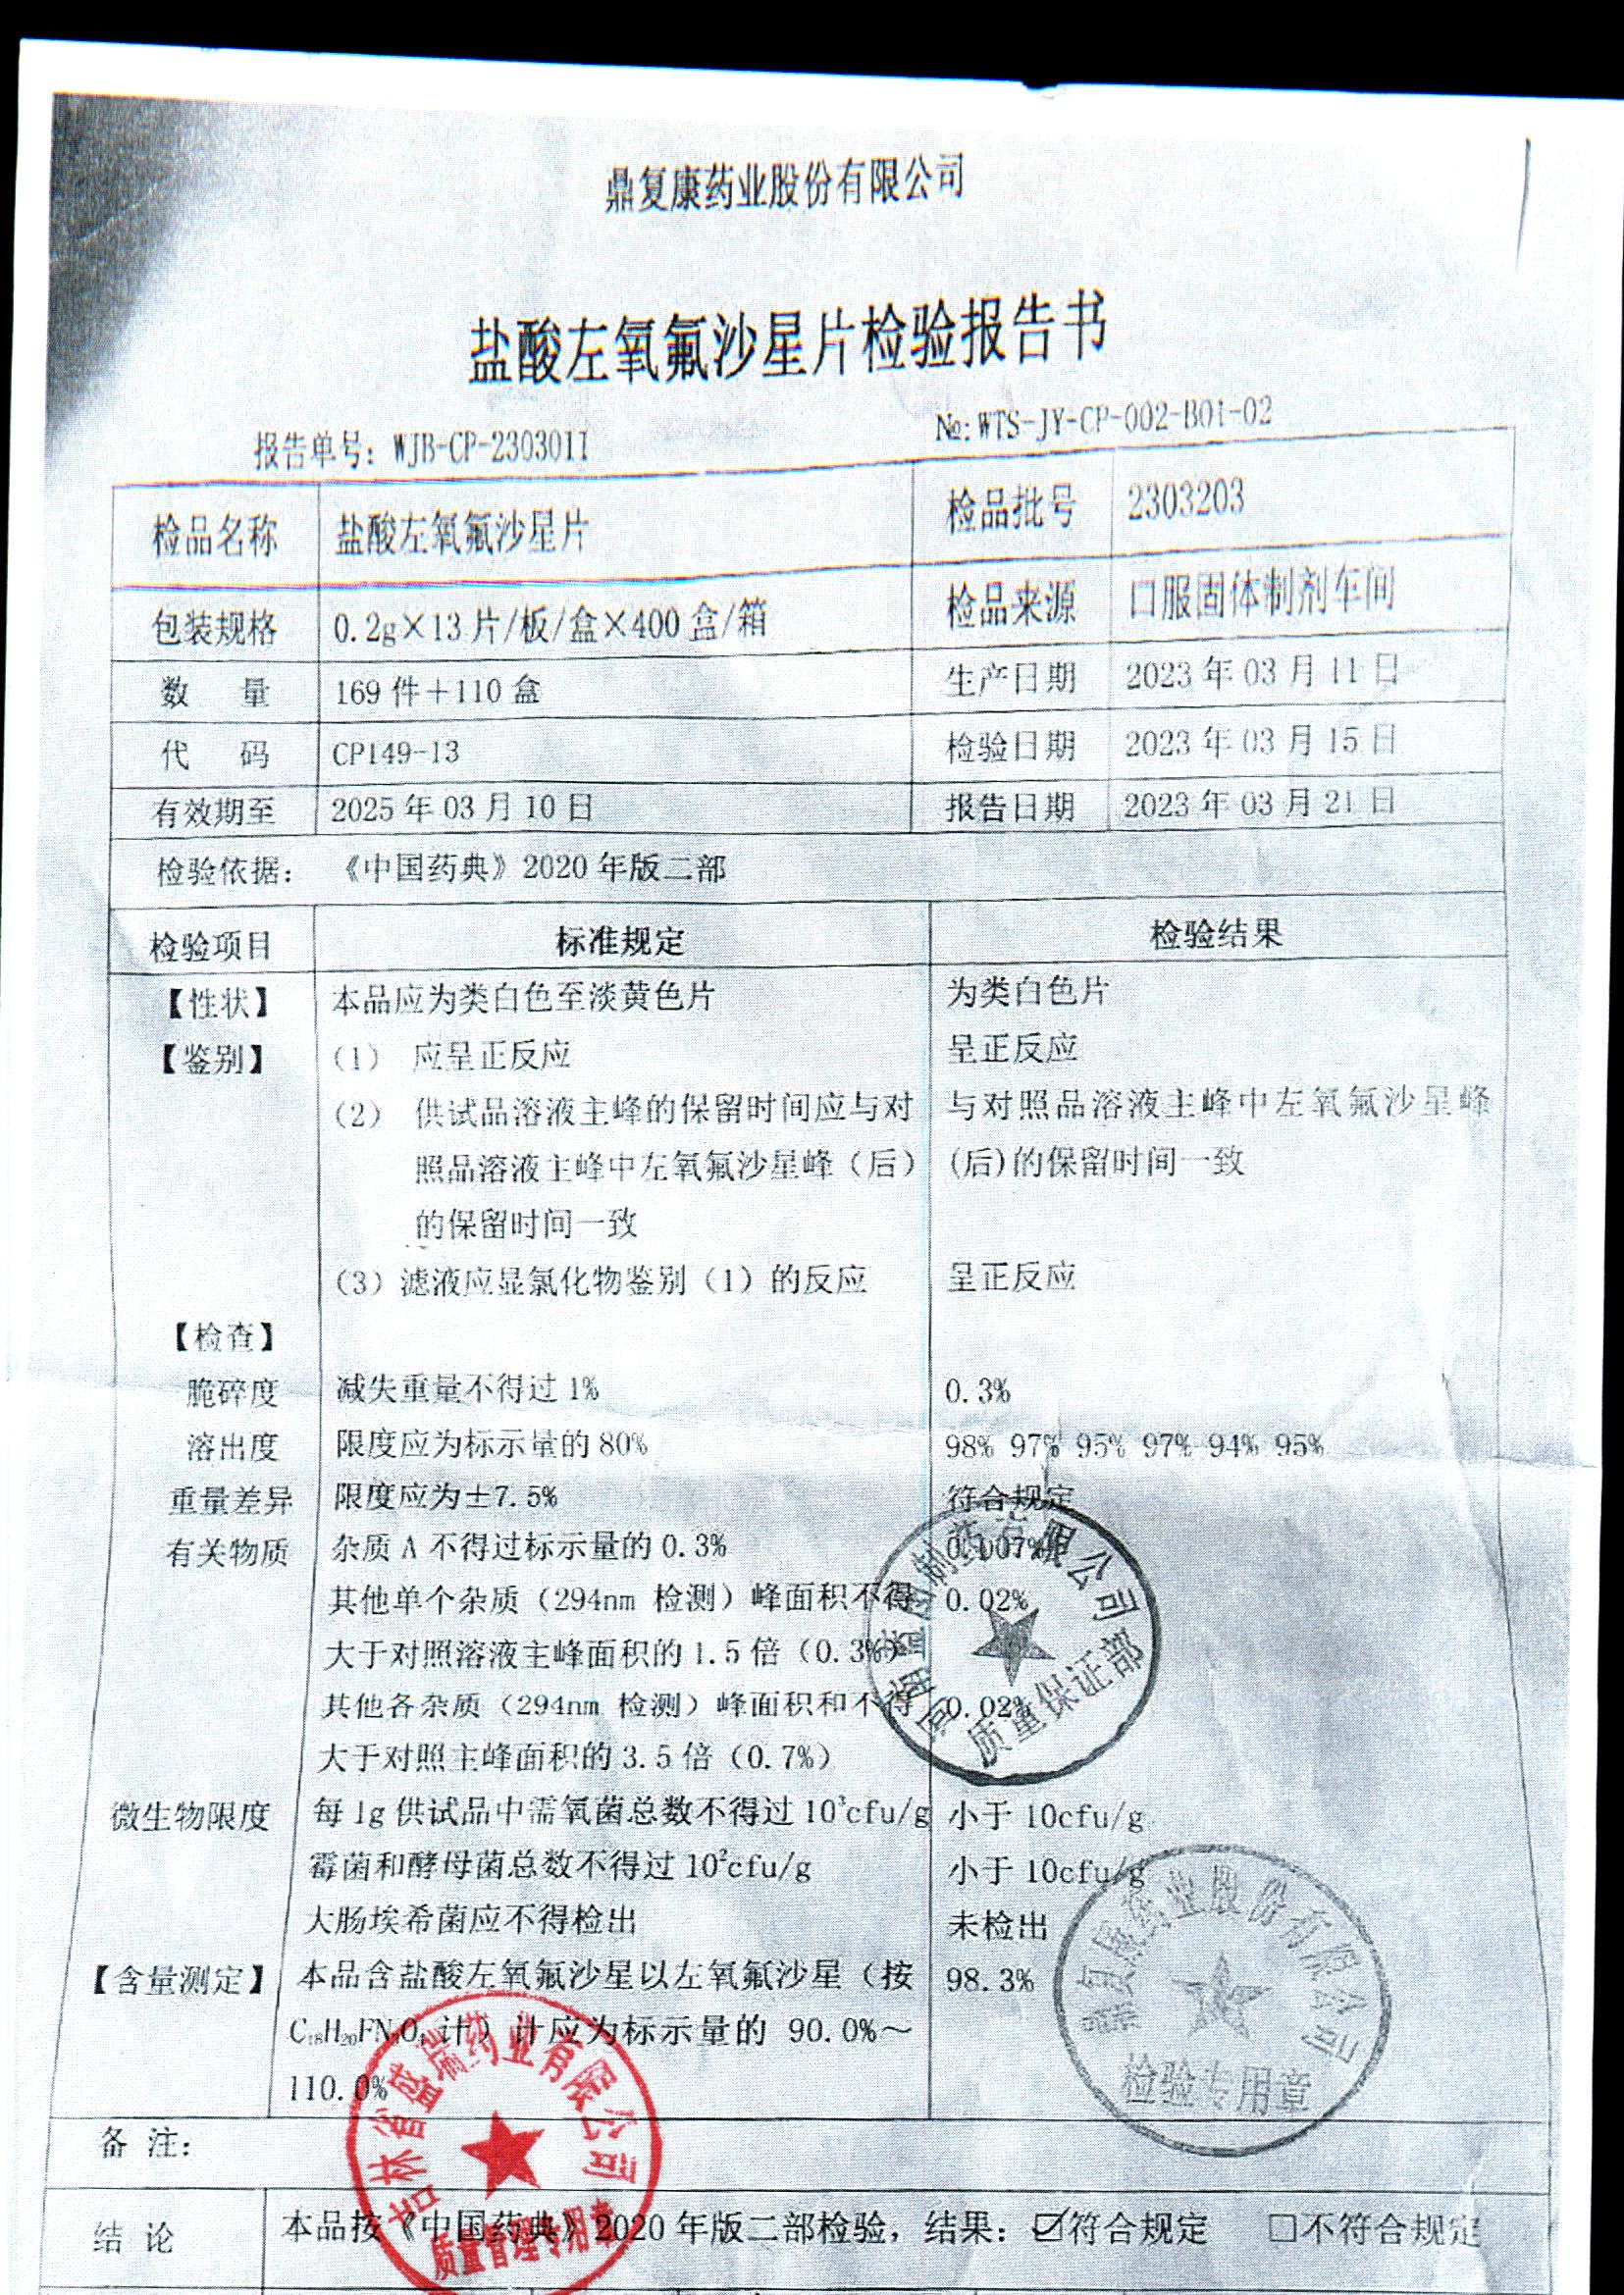 鼎复康药业股份有限公司
盐酸左氧氟沙星片检验报告书
报告单号：WJB-CP-2303011 №:WTS-JY-CP-002-B01-02
检品名称 盐酸左氧氟沙星片 检品批号 2303203
包装规格 0.2g×13片/板/盒×400盒/箱 检品来源 口服固体制剂车间
数 量 169件＋110盒 生产日期 2023年03月11日
代 码 CP149-13 检验日期 2023年03月15日
有效期至 2025年03月10日 报告日期 2023年03月21日
检验依据： 《中国药典》2020年版二部
检验项目 标准规定 检验结果
【性状】 本品应为类白色至淡黄色片 为类白色片
【鉴别】 （1） 应呈正反应 呈正反应
（2） 供试品溶液主峰的保留时间应与对 与对照品溶液主峰中左氧氟沙星峰
照品溶液主峰中左氧氟沙星峰（后） (后)的保留时间一致
的保留时间一致
（3）滤液应显氯化物鉴别（1）的反应 呈正反应
【检查】
脆碎度 减失重量不得过1% 0.3%
溶出度 限度应为标示量的80% 98% 97% 95% 97% 94% 95%
重量差异 限度应为±7.5% 符合规定
有关物质 杂质A不得过标示量的0.3% 0.007%
其他单个杂质（294nm 检测）峰面积不得 0.02%
大于对照溶液主峰面积的1.5倍（0.3%）
其他各杂质（294nm 检测）峰面积和不得 0.02%
大于对照主峰面积的3.5倍（0.7%）
微生物限度 每1g供试品中需氧菌总数不得过10³cfu/g 小于10cfu/g
霉菌和酵母菌总数不得过10²cfu/g 小于10cfu/g
大肠埃希菌应不得检出 未检出
【含量测定】 本品含盐酸左氧氟沙星以左氧氟沙星（按 98.3%
C₁₈H₂₀FN₃O₄计）计应为标示量的 90.0%～
110.0%
备 注：
结 论 本品按《中国药典》2020年版二部检验，结果：☑符合规定 □不符合规定
制药有限公司
质量保证部
鼎复康药业股份有限公司
检验专用章
吉林省盛瑞药业有限公司
质量管理专用章